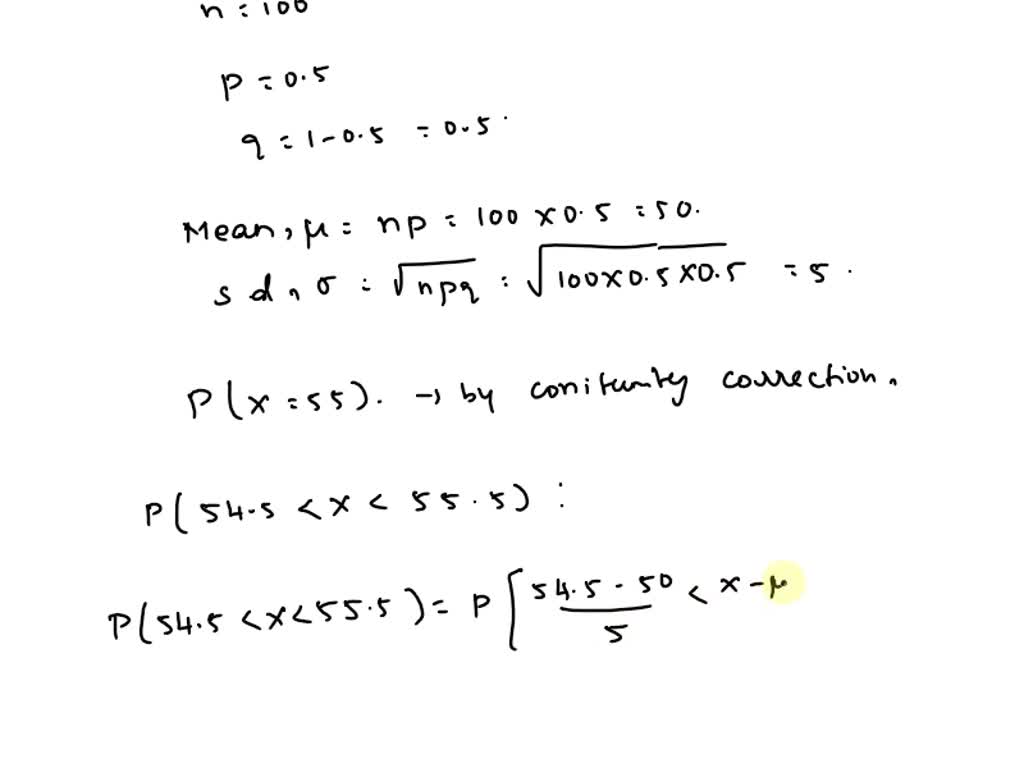 n = 100
p = 0.5
q = 1-0.5 = 0.5.
Mean, μ = np = 100 x 0.5 = 50.
sd, σ = √npq = √100x0.5x0.5 = 5.
P(x=55). → by conitunity correction.
P(54.5 < x < 55.5) :
P(54.5 < x < 55.5) = P[ (54.5 - 50)/5 < x - μ